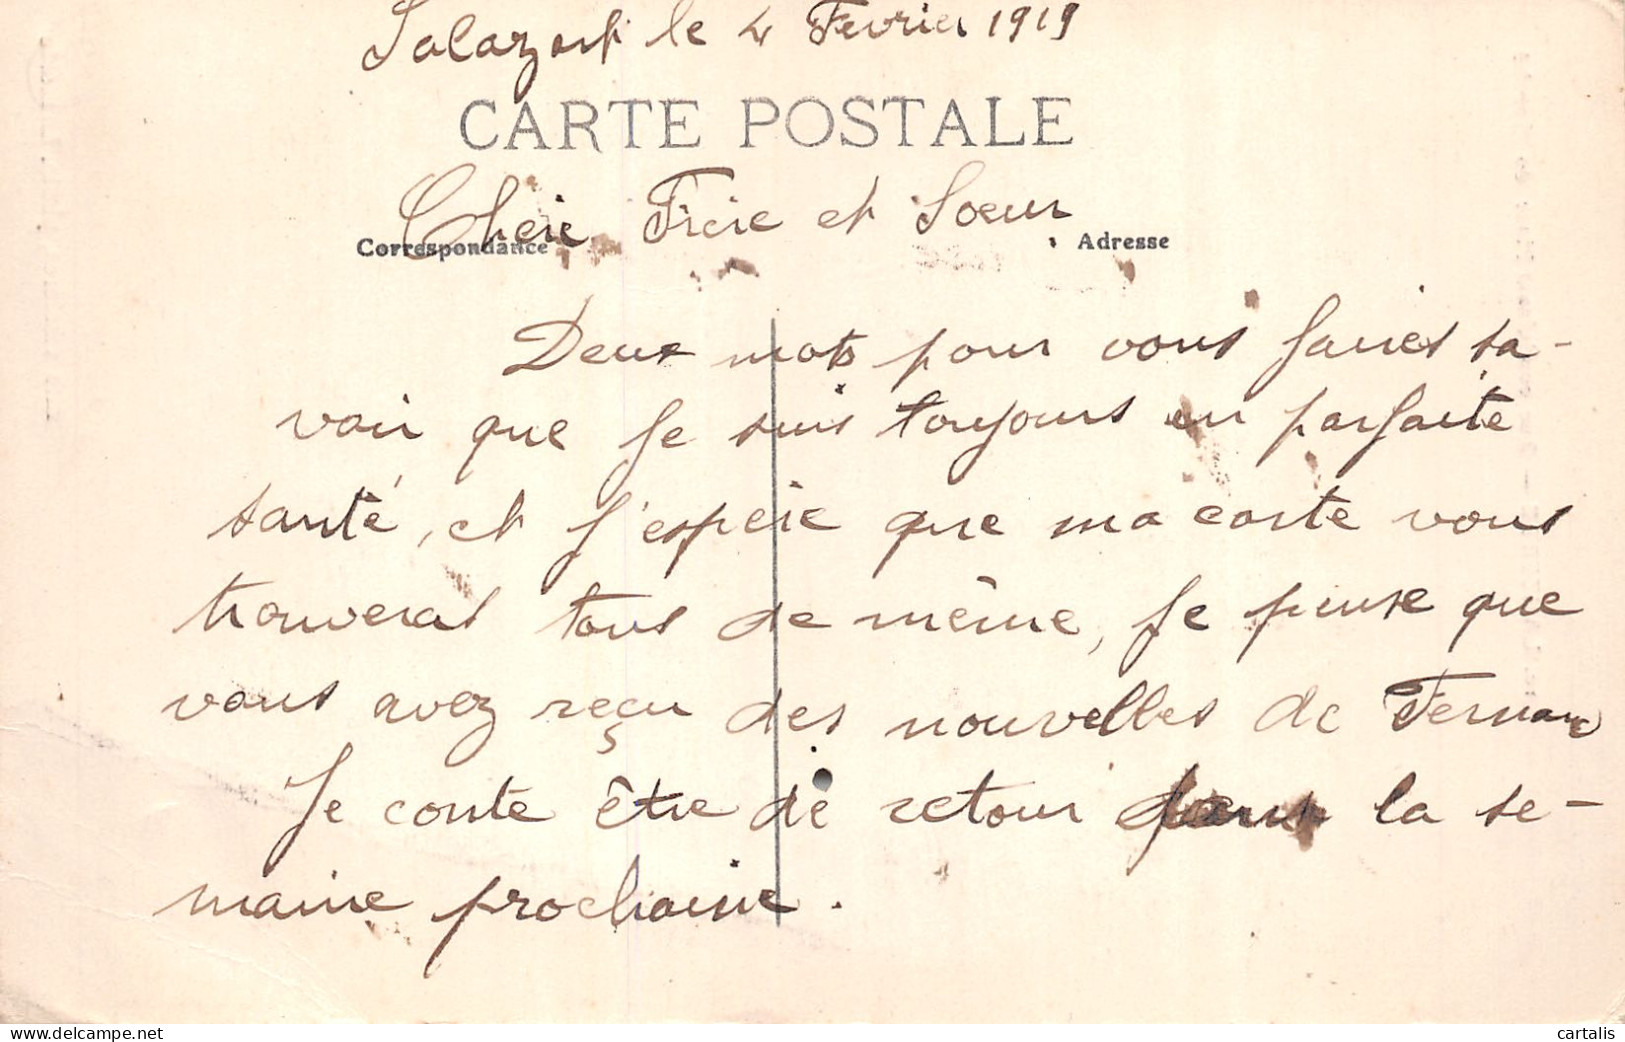 le 4 Fevrier 1919
CARTE POSTALE
Chere Frere et Soeur
Correspondance
Adresse
Deux mots pour vous faires sa-
voir que je suis toujours en parfaite
santé, et j'espère que ma carte vous
trouveras tous de même, je pense que
vous avez reçu des nouvelles de Fernand
Je conte être de retour dans la se-
maine prochaine.
cartalis
www.delcampe.net